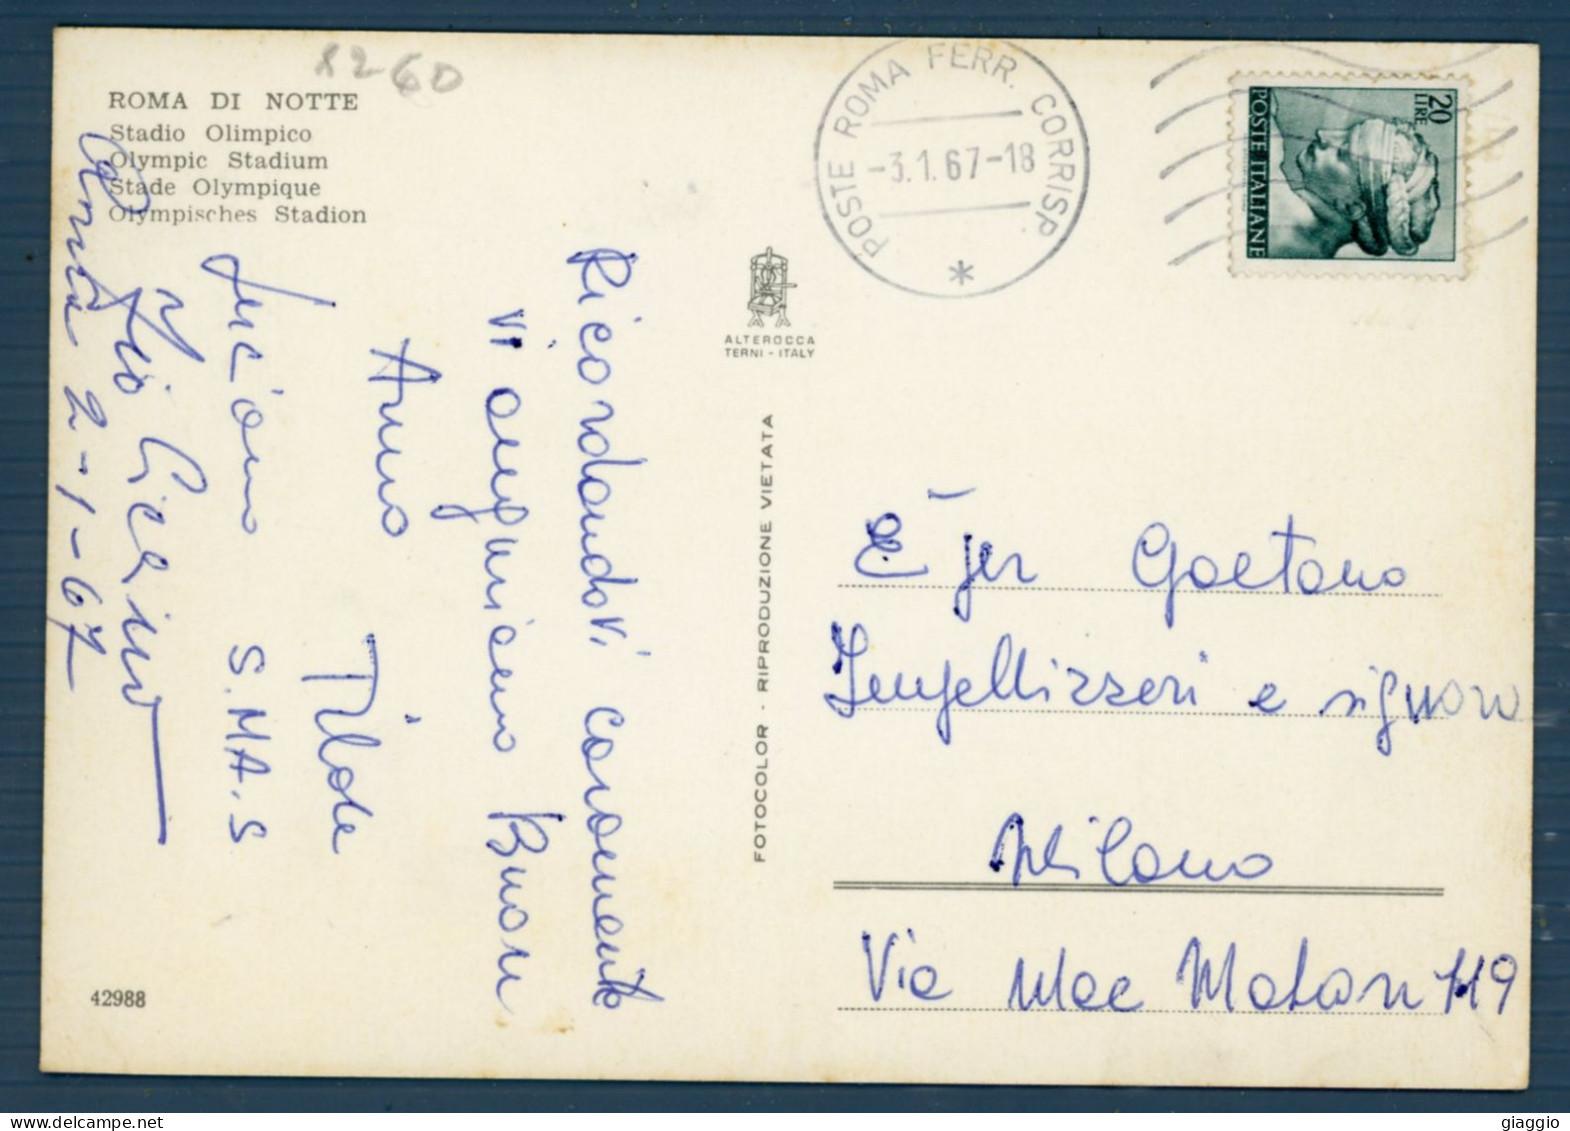 8260
ROMA DI NOTTE
Stadio Olimpico
Olympic Stadium
Stade Olympique
Olympisches Stadion
POSTE ROMA FERR. CORRISP.
-3.1.67-18
*
20 LIRE
POSTE ITALIANE
ALTEROCCA
TERNI - ITALY
FOTOCOLOR - RIPRODUZIONE VIETATA
Ricordandovi caramente
vi auguriamo Buon
Anno
Tilde
Luciano S.MA.S
Roma 2-1-67
Gaetano
e signora
Milano
Via Mac Mahon 119
42988
giaggio